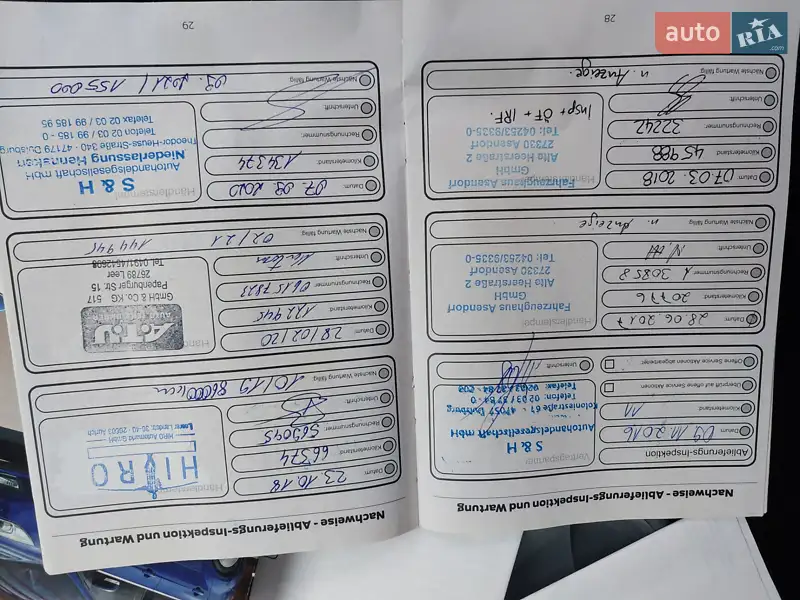 auto RIA .com
28
Nachweise - Ablieferungs-Inspektion und Wartung
Ablieferungs-Inspektion
Datum: 09.11.2016
Kilometerstand: 11
Überprüft auf offene Service Aktionen
Offene Service Aktionen abgearbeitet
Unterschrift:
Vertragspartner
S & H
Autohandelsgesellschaft mbH
Koloniestraße 67 - 47057 Duisburg
Datum: 28.06.2017
Kilometerstand: 20776
Rechnungsnummer:
Unterschrift:
Nächste Wartung fällig: n. Anzeige
Fahrzeughaus Asendorf
GmbH
Alte Heerstraße 2
27330 Asendorf
Tel: 04253/9335-0
Datum: 07.03.2018
Kilometerstand: 45988
Rechnungsnummer: 32242
Unterschrift:
Nächste Wartung fällig: n. Anzeige.
Fahrzeughaus Asendorf
GmbH
Alte Heerstraße 2
27330 Asendorf
Tel: 04253/9335-0
Insp + ÖF + IRF.
29
Nachweise - Ablieferungs-Inspektion und Wartung
Datum: 23.10.18
Kilometerstand: 66374
Rechnungsnummer: 565045
Unterschrift:
Nächste Wartung fällig: 10/19 86000 km
HIRO
HIRO Automarkt GmbH
26603 Aurich
Datum: 28/02/20
Kilometerstand: 122945
Rechnungsnummer:
Unterschrift:
Nächste Wartung fällig: 02/21 144945
ATU
GmbH & Co. KG 517
Papenburger Str. 15
26789 Leer
Datum: 07.09.2020
Kilometerstand: 134374
Rechnungsnummer:
Unterschrift:
Nächste Wartung fällig: 09.2021 / 155000
Händlerstempel
S & H
Autohandelsgesellschaft mbH
Niederlassung Hamborn
Theodor-Heuss-Straße 340 - 47179 Duisburg
Telefon 02 03 / 99 185 - 0
Telefax 02 03 / 99 185 95